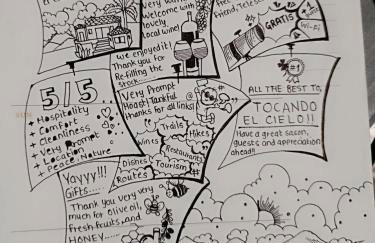 Welcome with
lovely
local wine!
We enjoyed it!
Thank you for
Re-filling the
Stock....
GRATIS
Wi-Fi
5/5...
+ Hospitality
+ Comfort
+ Cleanliness
+ Very Prompt
+ Location
+ Peace, Nature
Very Prompt
Thanks for all links!
Trails
Hikes
Wines
Restaurants
Dishes
Tourism
Routes
#1
ALL THE BEST TO,
TOCANDO
EL CIELO!!
Have a great season,
guests and appreciation
ahead!!
Yayyy!!!
Gifts....
Thank you very very
much for olive oil,
Fresh fruits, and
HONEY.....